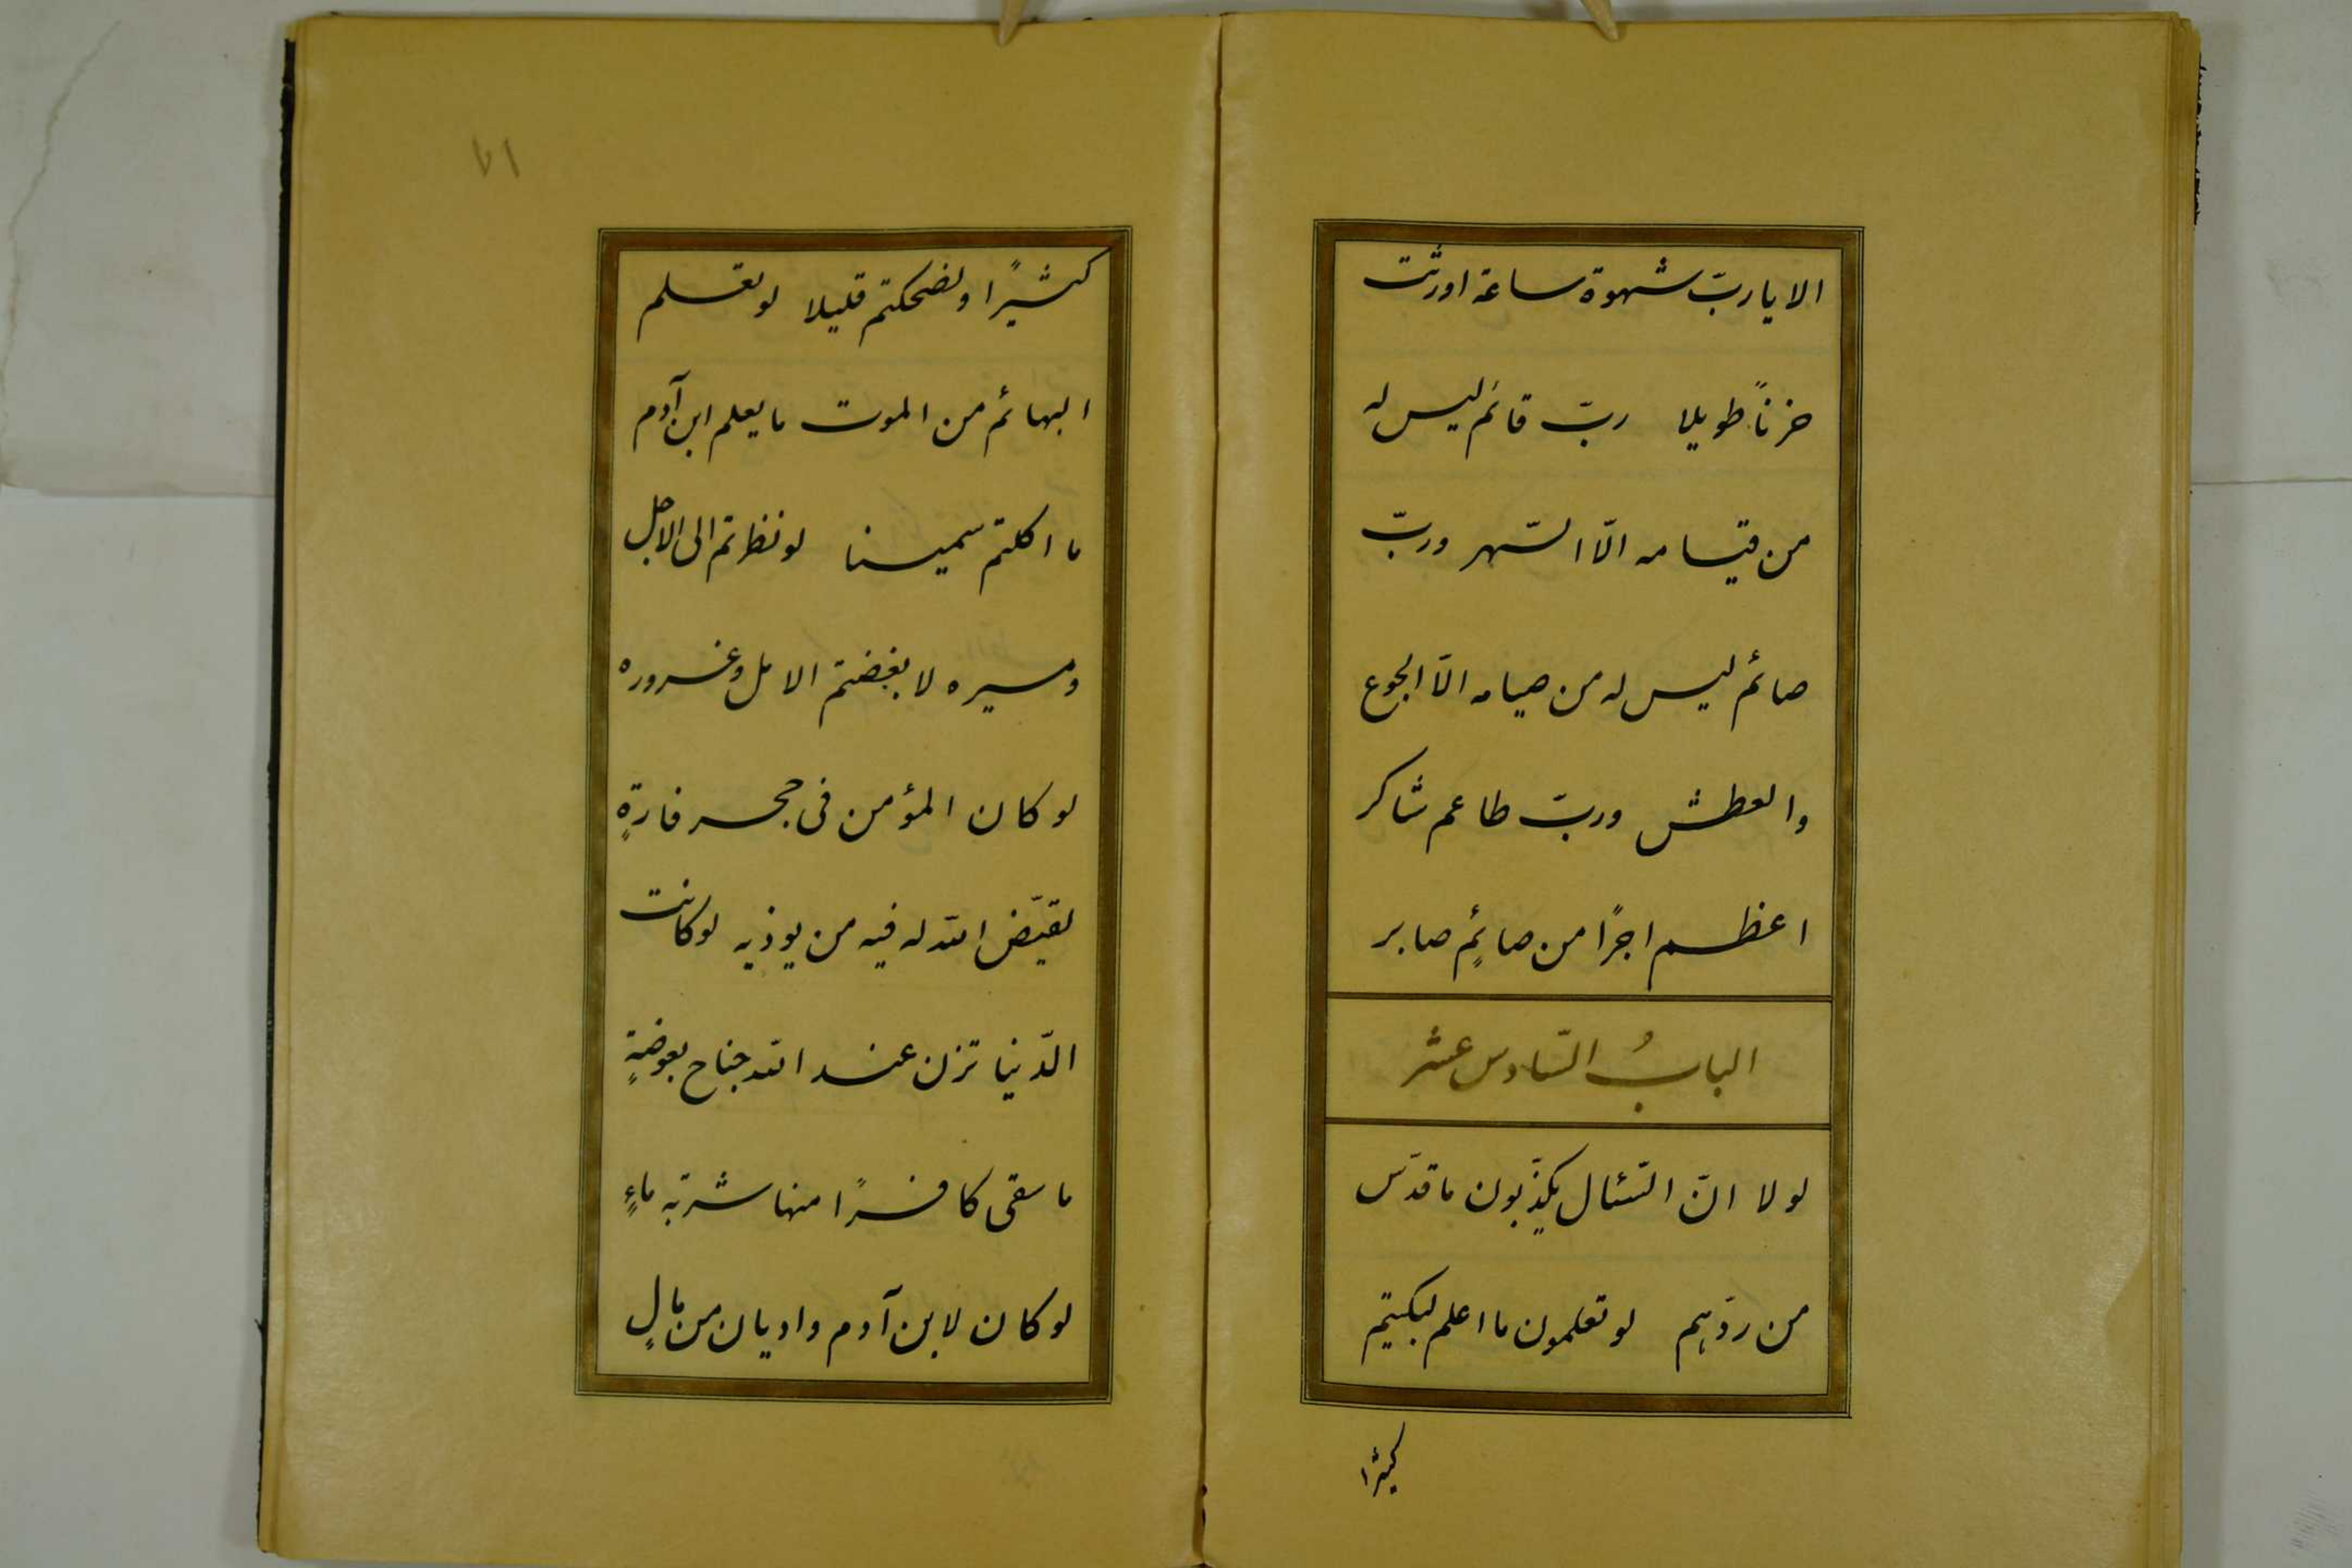 الا یا ربّ شهوة ساعة اورثت
حزناً طویلا ربّ قائم لیس له
من قیامه الّا السّهر وربّ
صائم لیس له من صیامه الّا الجوع
والعطش وربّ طاعم شاکر
اعظم اجرًا من صائمٍ صابر
البابُ السّادس عشر
لو لا انّ السّئال یکذّبون ما قدّس
من ردّهم لو تعلمون ما اعلم لبکیتم
کثیرا
۷۱
کثیرًا ولضحکتم قلیلا لو تعلم
البهائم من الموت ما یعلم ابن آدم
ما اکلتم سمینا لو نظرتم الی الاجل
ومسیره لابغضتم الامل وغروره
لو کان المؤمن فی جحر فارةٍ
لقیّض الله له فیه من یوذیه لو کانت
الدّنیا تزن عند الله جناح بعوضةٍ
ما سقی کافرًا منها شربة ماءٍ
لو کان لابن آدم وادیان من مالٍ